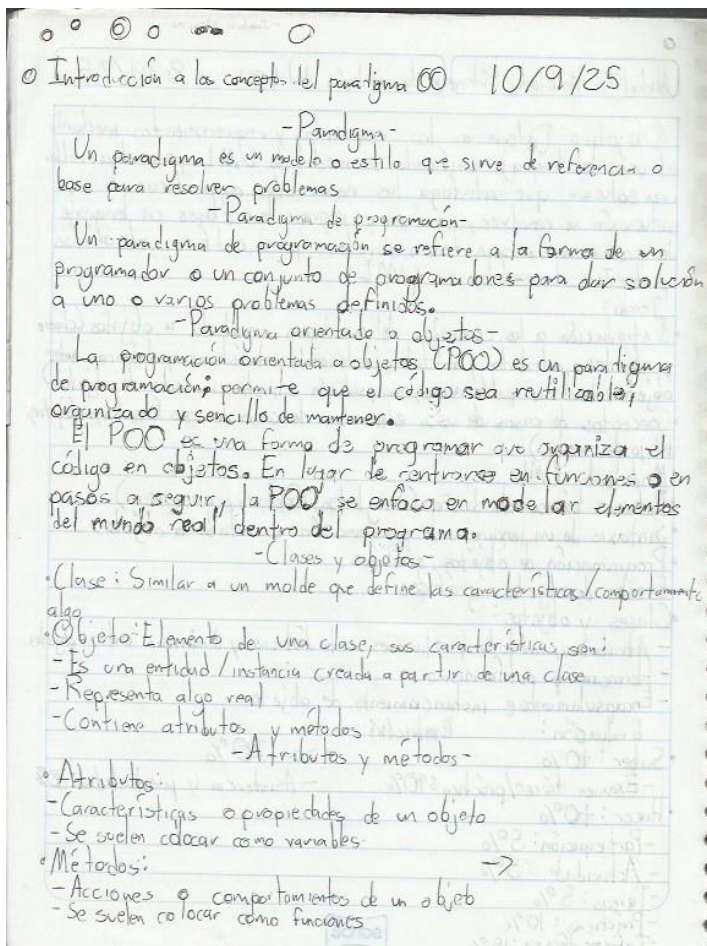 Introducción a los conceptos del paradigma OO 10/9/25
-Paradigma-
Un paradigma es un modelo o estilo que sirve de referencia o
base para resolver problemas
-Paradigma de programación-
Un paradigma de programación se refiere a la forma de un
programador o un conjunto de programadores para dar solución
a uno o varios problemas definidos.
-Paradigma orientado a objetos-
La programación orientada a objetos (POO) es un paradigma
de programación; permite que el código sea reutilizable,
organizado y sencillo de mantener.
El POO es una forma de programar que organiza el
código en objetos. En lugar de centrarse en funciones o en
pasos a seguir, la POO se enfoca en modelar elementos
del mundo real dentro del programa.
-Clases y objetos-
• Clase: Similar a un molde que define las características/comportamiento
algo
• Objeto: Elemento de una clase, sus características son:
- Es una entidad/instancia creada a partir de una clase
- Representa algo real
- Contiene atributos y métodos
-Atributos y métodos-
• Atributos:
- Características o propiedades de un objeto
- Se suelen colocar como variables.
• Métodos: →
- Acciones o comportamientos de un objeto
- Se suelen colocar como funciones